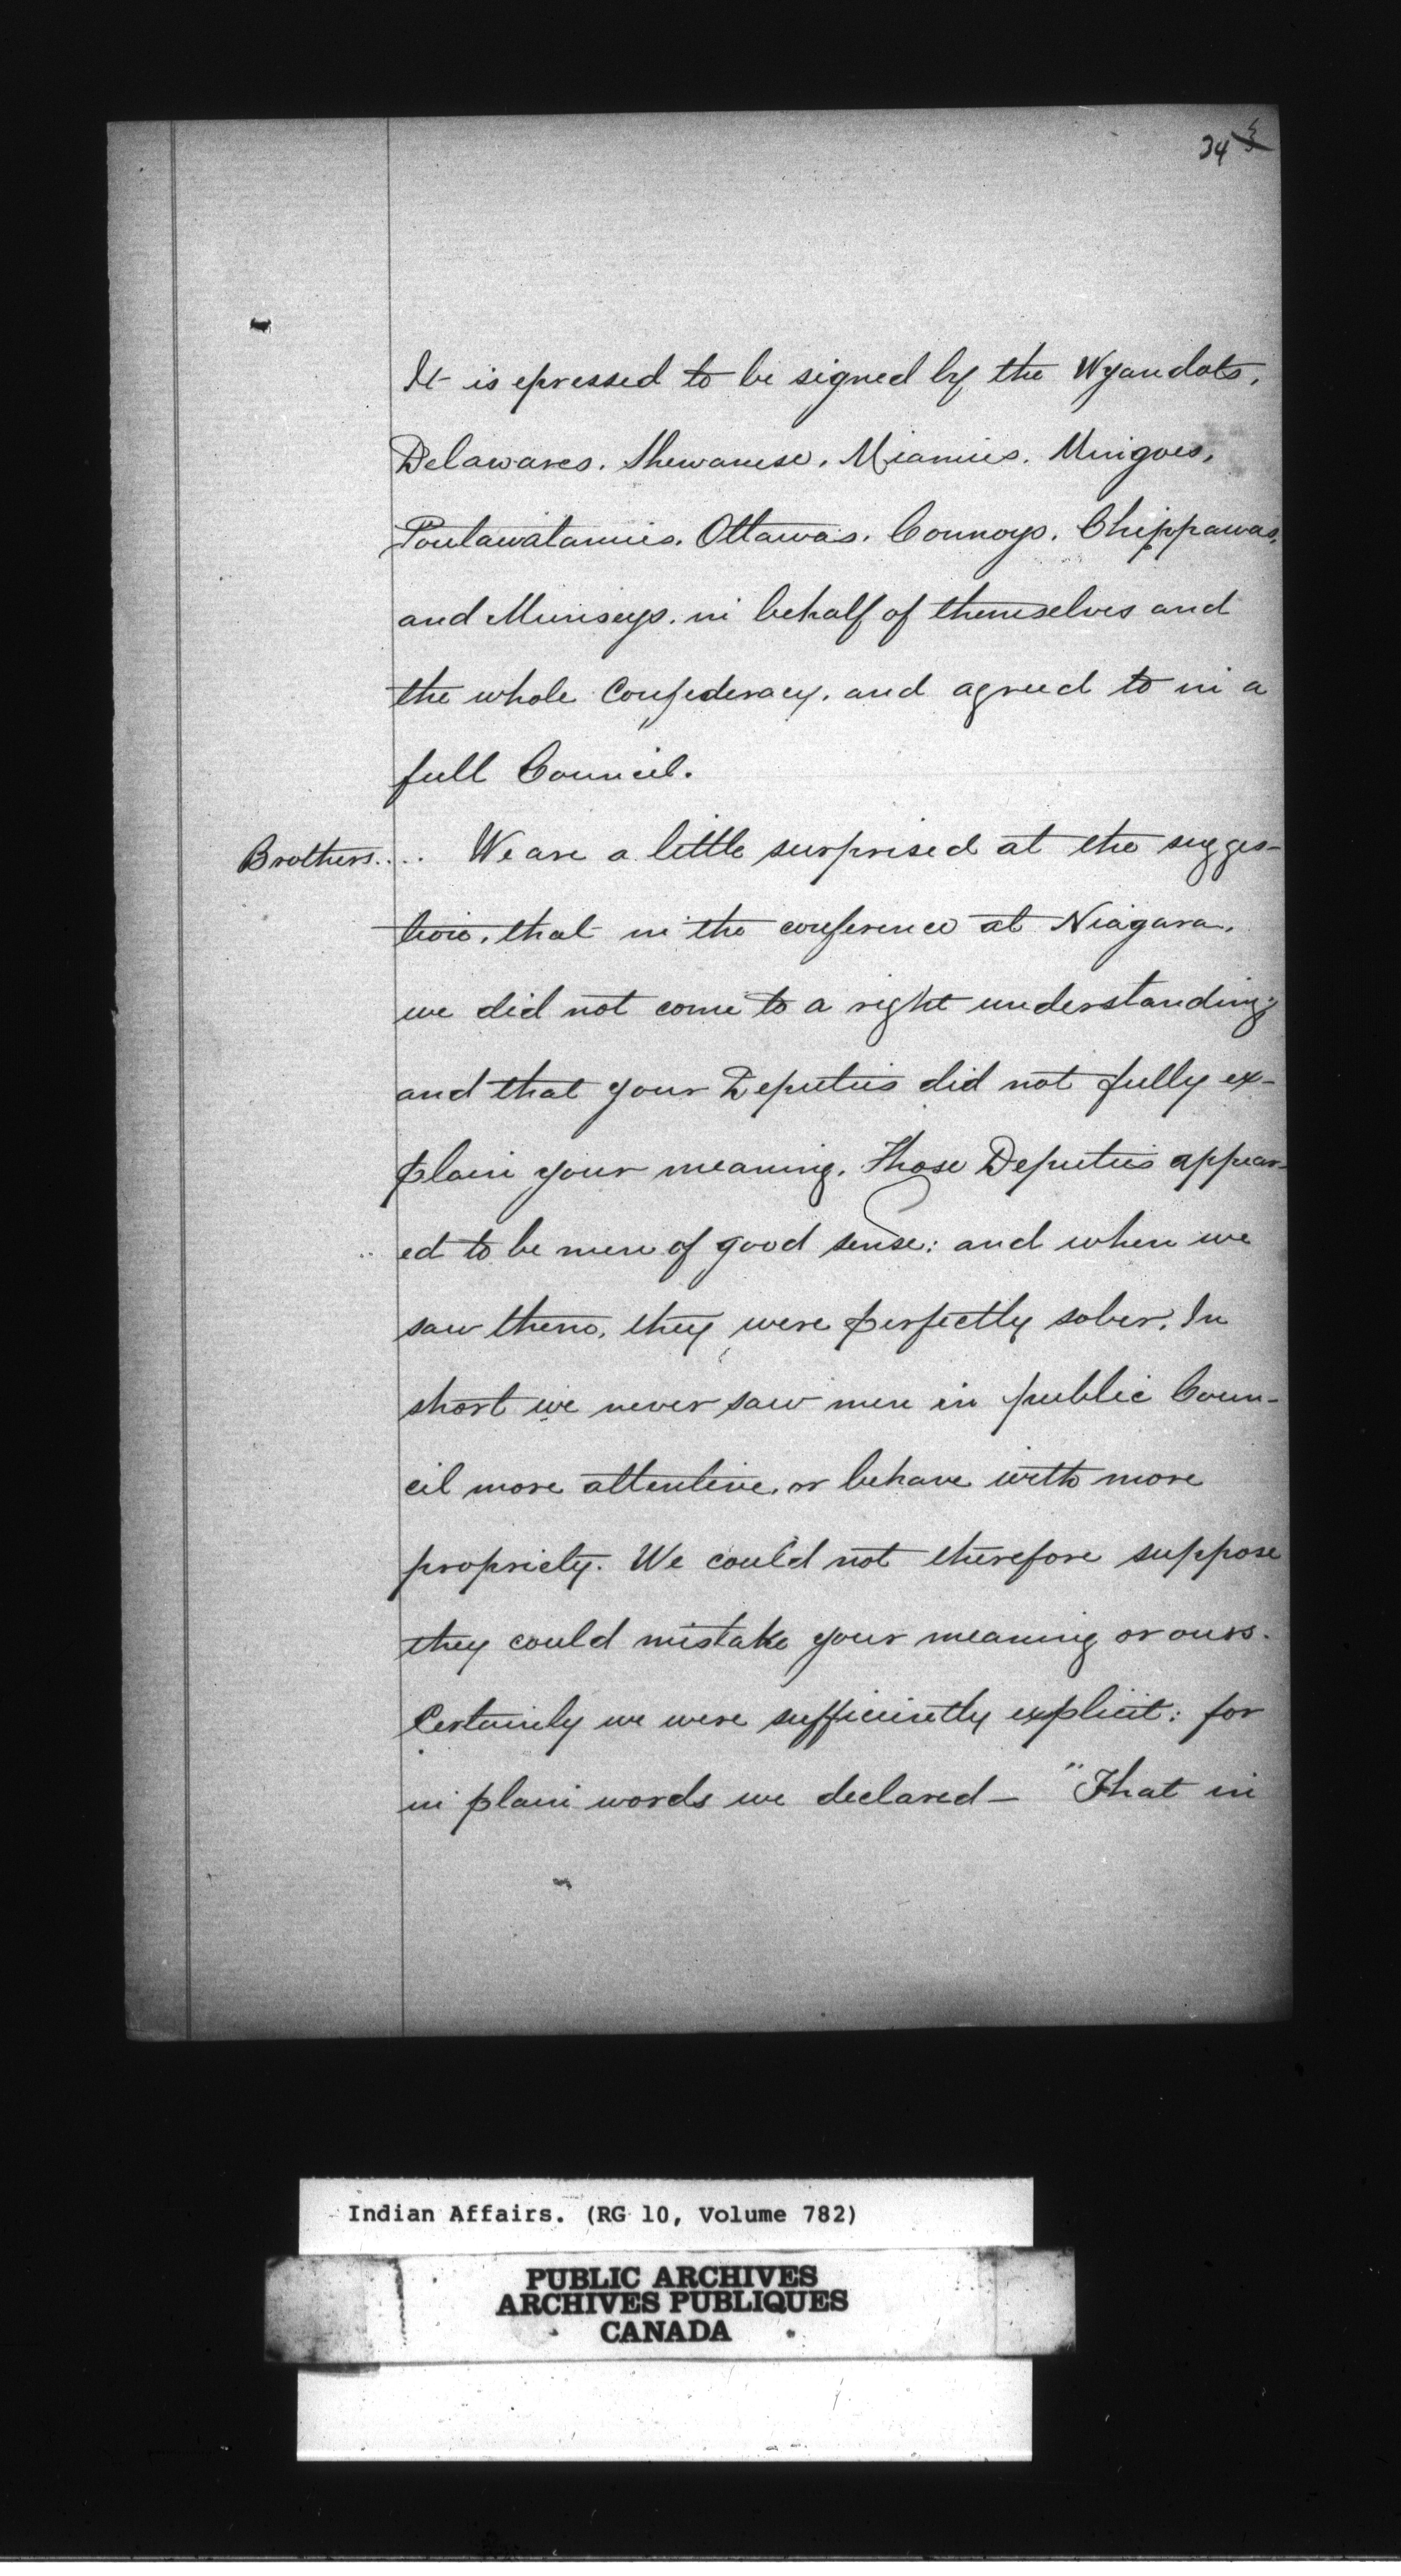 34 3
It is epressed to be signed by the Wyandots,
Delawares, Shewanese, Miamies, Mingoes,
Poutawatamies, Ottawas, Connoys, Chippawas,
and Munseys, in behalf of themselves and
the whole Confederacy, and agreed to in a
full Council.
Brothers.... We are a little surprised at the sugges-
tion, that in the conference at Niagara,
we did not come to a right understanding;
and that your Deputies did not fully ex-
plain your meaning. Those Deputies appear-
ed to be men of good sense: and when we
saw them, they were perfectly sober. In
short we never saw men in public Coun-
cil more attentive, or behave with more
propriety. We could not therefore suppose
they could mistake your meaning or ours.
Certainly we were sufficiently explicit: for
in plain words we declared — "That in
Indian Affairs. (RG 10, Volume 782)
PUBLIC ARCHIVES
ARCHIVES PUBLIQUES
CANADA